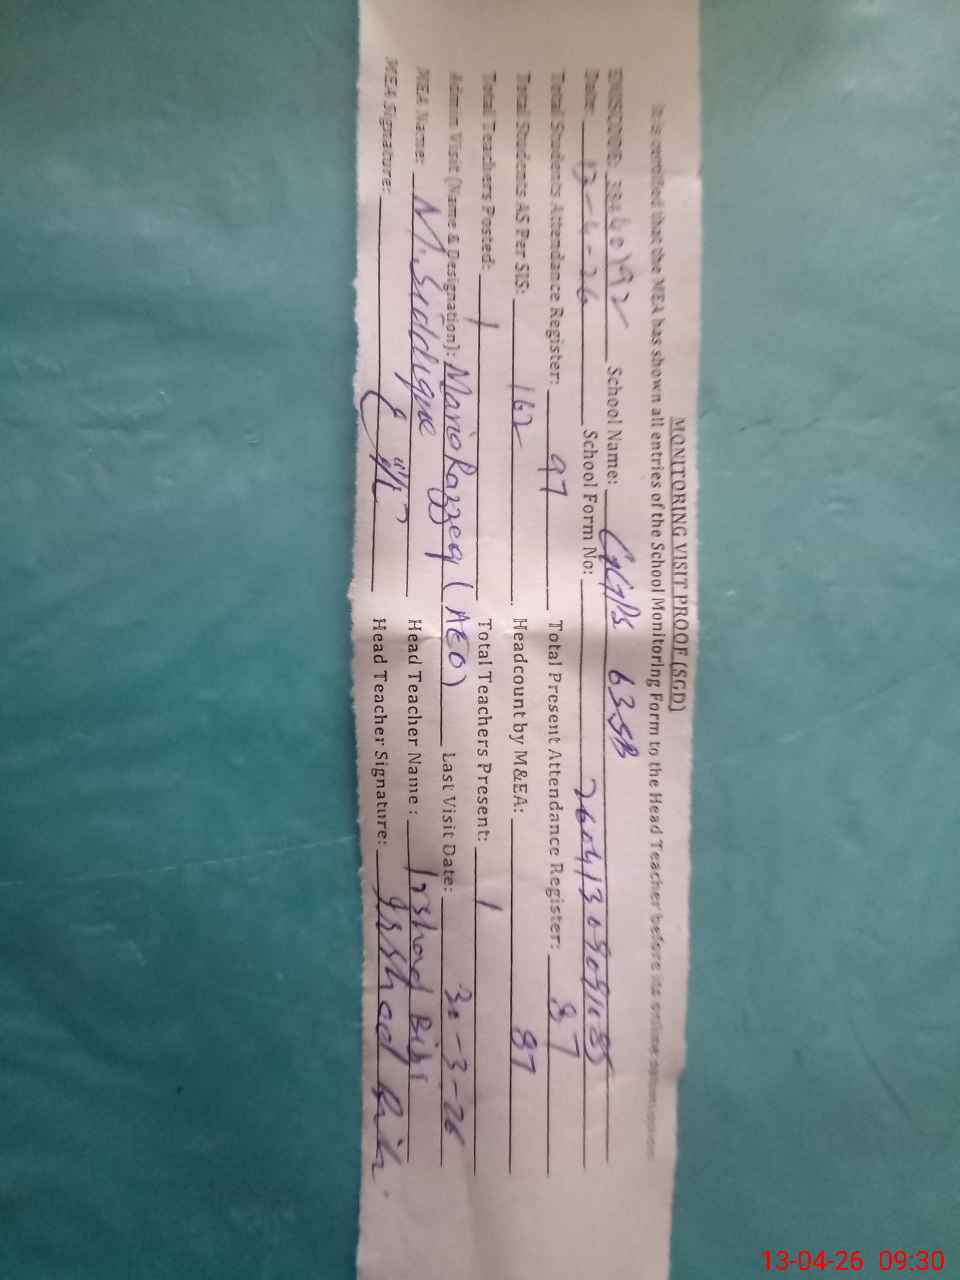 MONITORING VISIT PROOF (SGD)
It is certified that the MEA has shown all entries of the School Monitoring Form to the Head Teacher before its online
EMISCODE: School Name: GGPS 63SB
Date: 13-4-26 School Form No:
Total Students Attendance Register: 97 Total Present Attendance Register: 87
Total Students AS Per SIS: 162 Headcount by M&EA: 87
Total Teachers Posted: 1 Total Teachers Present: 1
Admin Visit (Name & Designation): Maria Razzaq (AEO) Last Visit Date: 30-3-26
MEA Name: M. Siddique Head Teacher Name: Irshad Bibi
MEA Signature: Head Teacher Signature: Irshad Bibi
13-04-26 09:30